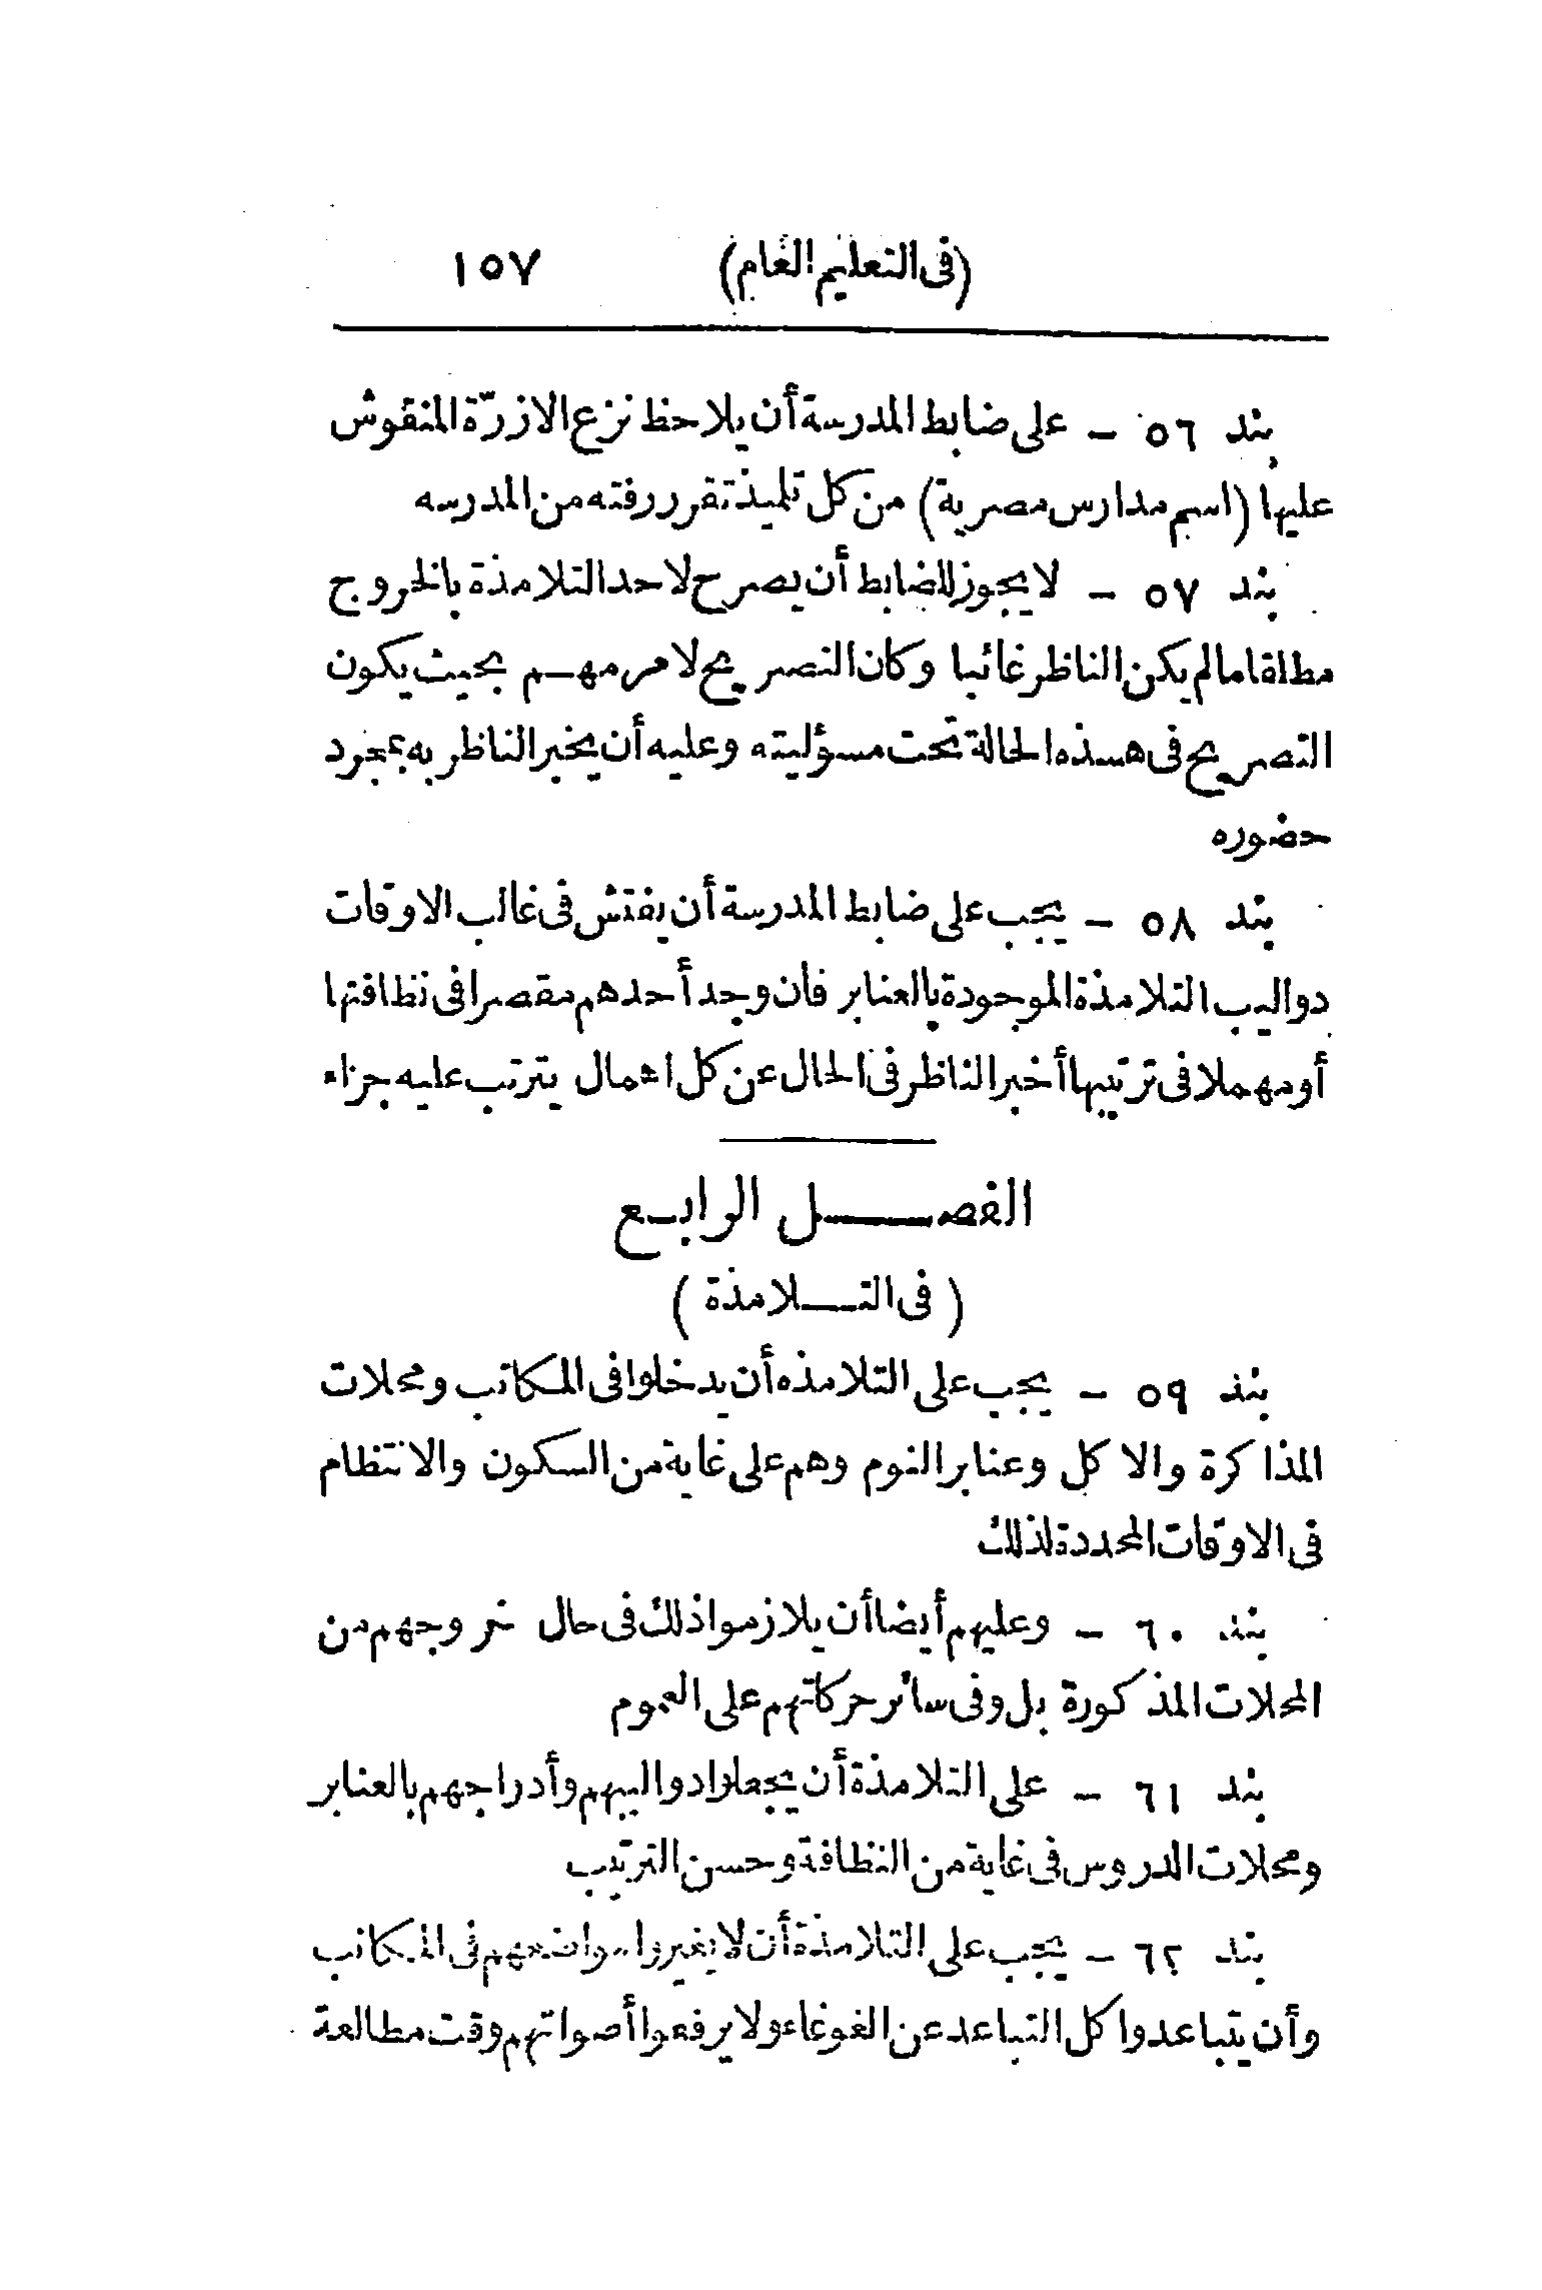 (فى التعليم العام) ١٥٧
بند ٥٦ – على ضابط المدرسة أن يلاحظ نزع الازرّة المنقوش
عليها (اسم مدارس مصرية) من كل تلميذ تقرر رفته من المدرسه
بند ٥٧ – لا يجوز للضابط أن يصرح لاحد التلامذة بالخروج
مطلقا مالم يكن الناظر غائبا وكان التصريح لامر مهم بحيث يكون
التصريح فى هذه الحالة تحت مسؤليته وعليه أن يخبر الناظر به بمجرد
حضوره
بند ٥٨ – يجب على ضابط المدرسة أن يفتش فى غالب الاوقات
دواليب التلامذة الموجودة بالعنابر فان وجد أحدهم مقصرا فى نظافتها
أو مهملا فى ترتيبها أخبر الناظر فى الحال عن كل اهمال يترتب عليه جزاء
الفصل الرابع
(فى التلامذة)
بند ٥٩ – يجب على التلامذه أن يدخلوا فى المكاتب ومحلات
المذاكرة والاكل وعنابر النوم وهم على غاية من السكون والانتظام
فى الاوقات المحددة لذلك
بند ٦٠ – وعليهم أيضا أن يلازموا ذلك فى حال خروجهم من
المحلات المذكورة بل وفى سائر حركاتهم على العموم
بند ٦١ – على التلامذة أن يجعلوا دواليبهم وأدراجهم بالعنابر
ومحلات الدروس فى غاية من النظافة وحسن الترتيب
بند ٦٢ – يجب على التلامذة أن لا يغيروا مواضعهم فى المكاتب
وأن يتباعدوا كل التباعد عن الغوغاء ولا يرفعوا أصواتهم وقت مطالعة